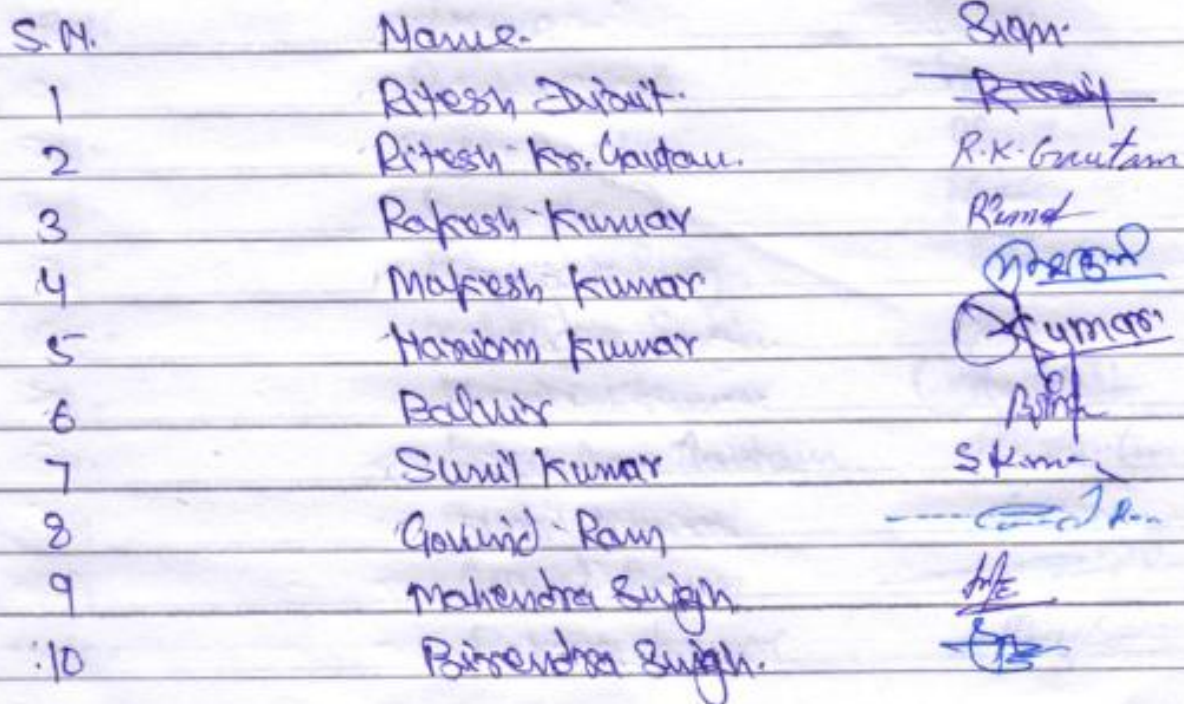 S.N. Name. Sign.
1 Ritesh R
2 Ritesh Kr. Gautam. R.K. Gautam
3 Rakesh Kumar
4 Mukesh Kumar
5 Hariom Kumar Kumar
6 Balvir
7 Sunil Kumar S Kumar
8 Govind Ram
9 Mahendra Singh
10 Birendra Singh.